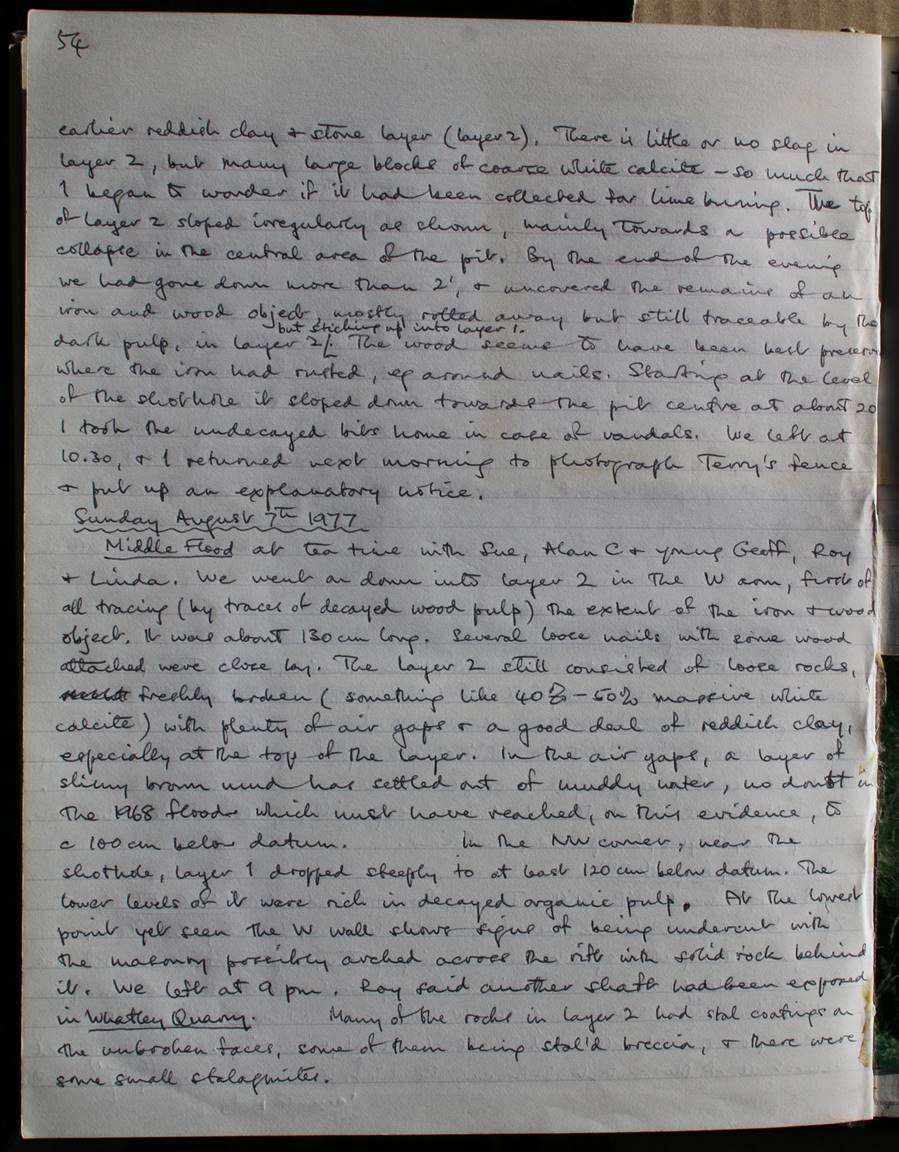 54
earlier reddish clay + stone layer (layer 2). There is little or no slag in
layer 2, but many large blocks of coarse white calcite – so much that
I began to wonder if it had been collected for lime burning. The top
of layer 2 sloped irregularly as shown, mainly towards a possible
collapse in the central area of the pit. By the end of the evening
we had gone down more than 2', + uncovered the remains of an
iron and wood object, mostly rotted away but still traceable by the
but sticking up into layer 1.
dark pulp, in layer 2/. The wood seems to have been best preserv
where the iron had rusted, eg around nails. Starting at the level
of the shothole it sloped down towards the pit centre at about 20
I took the undecayed bits home in case of vandals. We left at
10.30, + I returned next morning to photograph Terry's fence
+ put up an explanatory notice.
Sunday August 7th 1977
Middle Flood at tea time with Sue, Alan C + young Geoff, Roy
+ Linda. We went on down into layer 2 in the W arm, first of
all tracing (by traces of decayed wood pulp) the extent of the iron + wood
object. It was about 130 cm long. Several loose nails with some wood
attached were close by. The layer 2 still consisted of loose rocks,
freshly broken (something like 40%–50% massive white
calcite) with plenty of air gaps + a good deal of reddish clay,
especially at the top of the layer. In the air gaps, a layer of
slimy brown mud has settled out of muddy water, no doubt in
the 1968 floods which must have reached, on this evidence, to
c 100 cm below datum. In the NW corner, near the
shothole, layer 1 dropped steeply to at least 120 cm below datum. The
lower levels of it were rich in decayed organic pulp. At the lowest
point yet seen the W wall shows signs of being undercut with
the masonry possibly arched across the rift with solid rock behind
it. We left at 9 pm. Roy said another shaft had been exposed
in Whatley Quarry. Many of the rocks in layer 2 had stal coatings on
the unbroken faces, some of them being stal'd breccia, + there were
some small stalagmites.